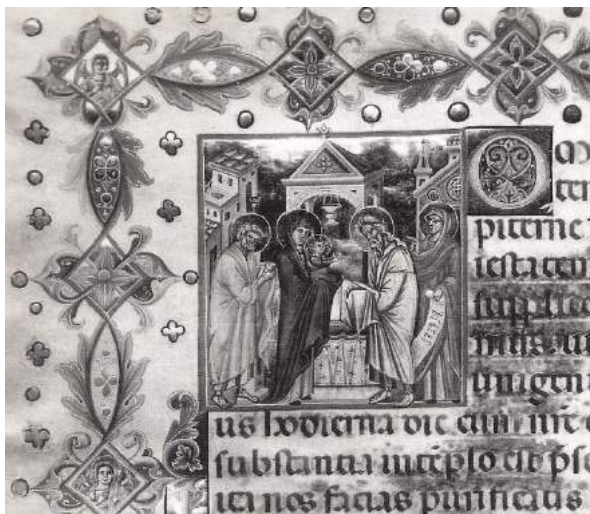 Om
ten
piterne
iestatem
supplice
mus ut
unigeni
us hodierna die cum nre
substantia in teplo est pse
ita nos facias purificatis